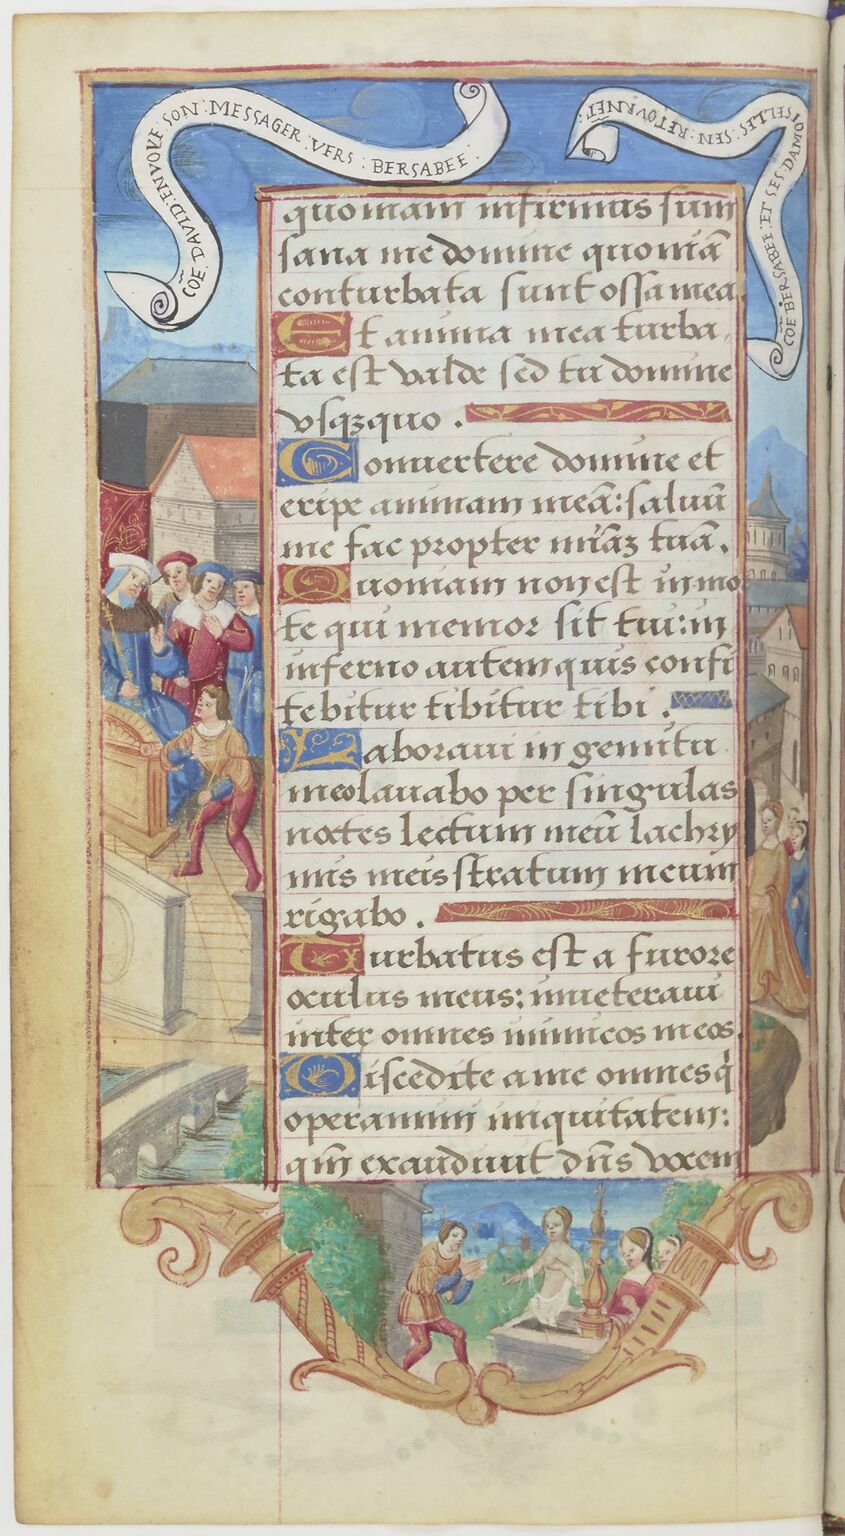 CŌE : DAVID : ENVOVE SON : MESSAGER : VERS : BERSABEE :
CŌE BERSABEE : ET SES : DAMOISELLES : SEN : RETOVRNET :
quoniam infirmus sum
sana me domine quoniā
conturbata sunt ossa mea.
Et anima mea turba,
ta est valde sed tu domine
vsqꝫquo .
Conuertere domine et
eripe animam meā: saluū
me fac propter miā̃z tuā.
Quoniam non est in mo
te qui memor sit tui: in
inferno autem quis confi
tebitur tibitur tibi .
Laboraui in gemitu
meo lauabo per singulas
noctes lectum meū lachry
mis meis stratum meum
rigabo .
Turbatus est a furore
oculus meus: inueteraui
inter omnes inimicos meos.
Discedite a me omnes q̇
operamini iniquitatem:
qm̄ exaudiuit dn̄s vocem